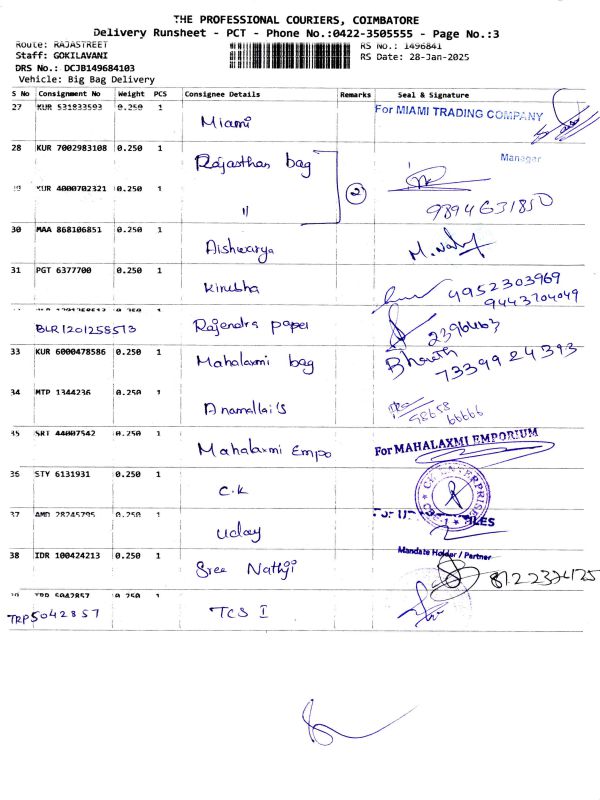 THE PROFESSIONAL COURIERS, COIMBATORE
Delivery Runsheet - PCT - Phone No.:0422-3505555 - Page No.:3
Route: RAJASTREET
RS No.: 1496841
Staff: GOKILAVANI
RS Date: 28-Jan-2025
DRS No.: DCJB149684103
Vehicle: Big Bag Delivery
S No Consignment No Weight PCS Consignee Details Remarks Seal & Signature
27 KUR 531833593 0.250 1 Miami For MIAMI TRADING COMPANY
Manager
28 KUR 7002983108 0.250 1 Rajasthan bag
KUR 4000702321 0.250 1 " 2 9894631850
30 MAA 868106851 0.250 1 Aishwarya
31 PGT 6377700 0.250 1 Kirubha 4952303969
9443704049
BLR1201258513 Rajendra paper
33 KUR 6000478586 0.250 1 Mahalaxmi bag Bharath
7339924393
34 MTP 1344236 0.250 1 Anamallai's 98658
66666
35 SRT 44007542 0.250 1 Mahalaxmi Empo For MAHALAXMI EMPORIUM
36 STY 6131931 0.250 1 C.K
37 AMD 28245795 0.250 1 Uday
38 IDR 100424213 0.250 1 Sree Nathji Mandate Holder / Partner
TRP 5042857 0.250 1
TRP5042857 TCS I